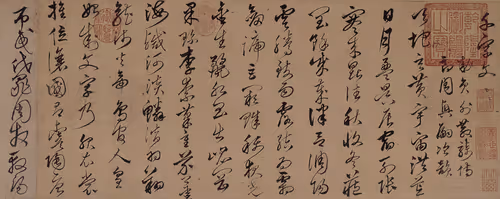 千字文
敕員外散騎侍
郎周興嗣次韻
天地玄黃宇宙洪荒
日月盈昃辰宿列張
寒來暑往秋收冬藏
閏餘成歲律呂調陽
雲騰致雨露結為霜
劍號巨闕珠稱夜光
金生麗水玉出崑岡
果珍李柰菜重芥薑
海鹹河淡鱗潛羽翔
龍師火帝鳥官人皇
始制文字乃服衣裳
推位讓國有虞陶唐
弔民伐罪周發殷湯